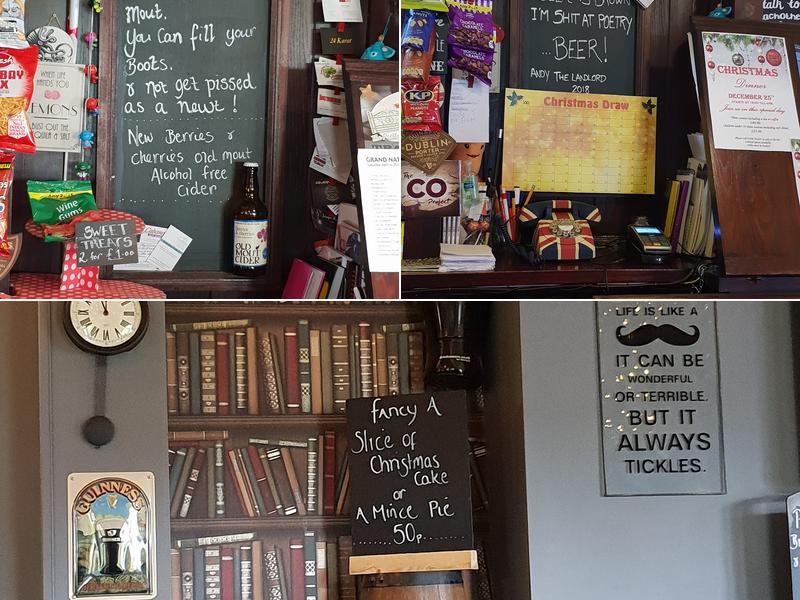 Mout.
You Can fill your
Boots.
& not get pissed
as a newt !
New Berries &
cherries old mout
Alcohol free
Cider
WHEN LIFE
HANDS YOU
LEMONS
BUST OUT THE
TEQUILA & SALT
BAY
Wine
Gums
SWEET
TREATS
2 for £1.00
OLD
MOUT
CIDER
24 Karat
GRAND NAT
I'M SHIT AT POETRY
...BEER!
ANDY THE LANDLORD
2018
Christmas Draw
KP
PEANUTS
DUBLIN
PORTER
The
CO
Project
talk to
CHRISTMAS
Dinner
DECEMBER 25th
Join us on this special day
GUINNESS
fancy A
Slice of
Christmas
Cake
or
A Mince Pie
50p
LIFE IS LIKE A
IT CAN BE
WONDERFUL
OR TERRIBLE.
BUT IT
ALWAYS
TICKLES.